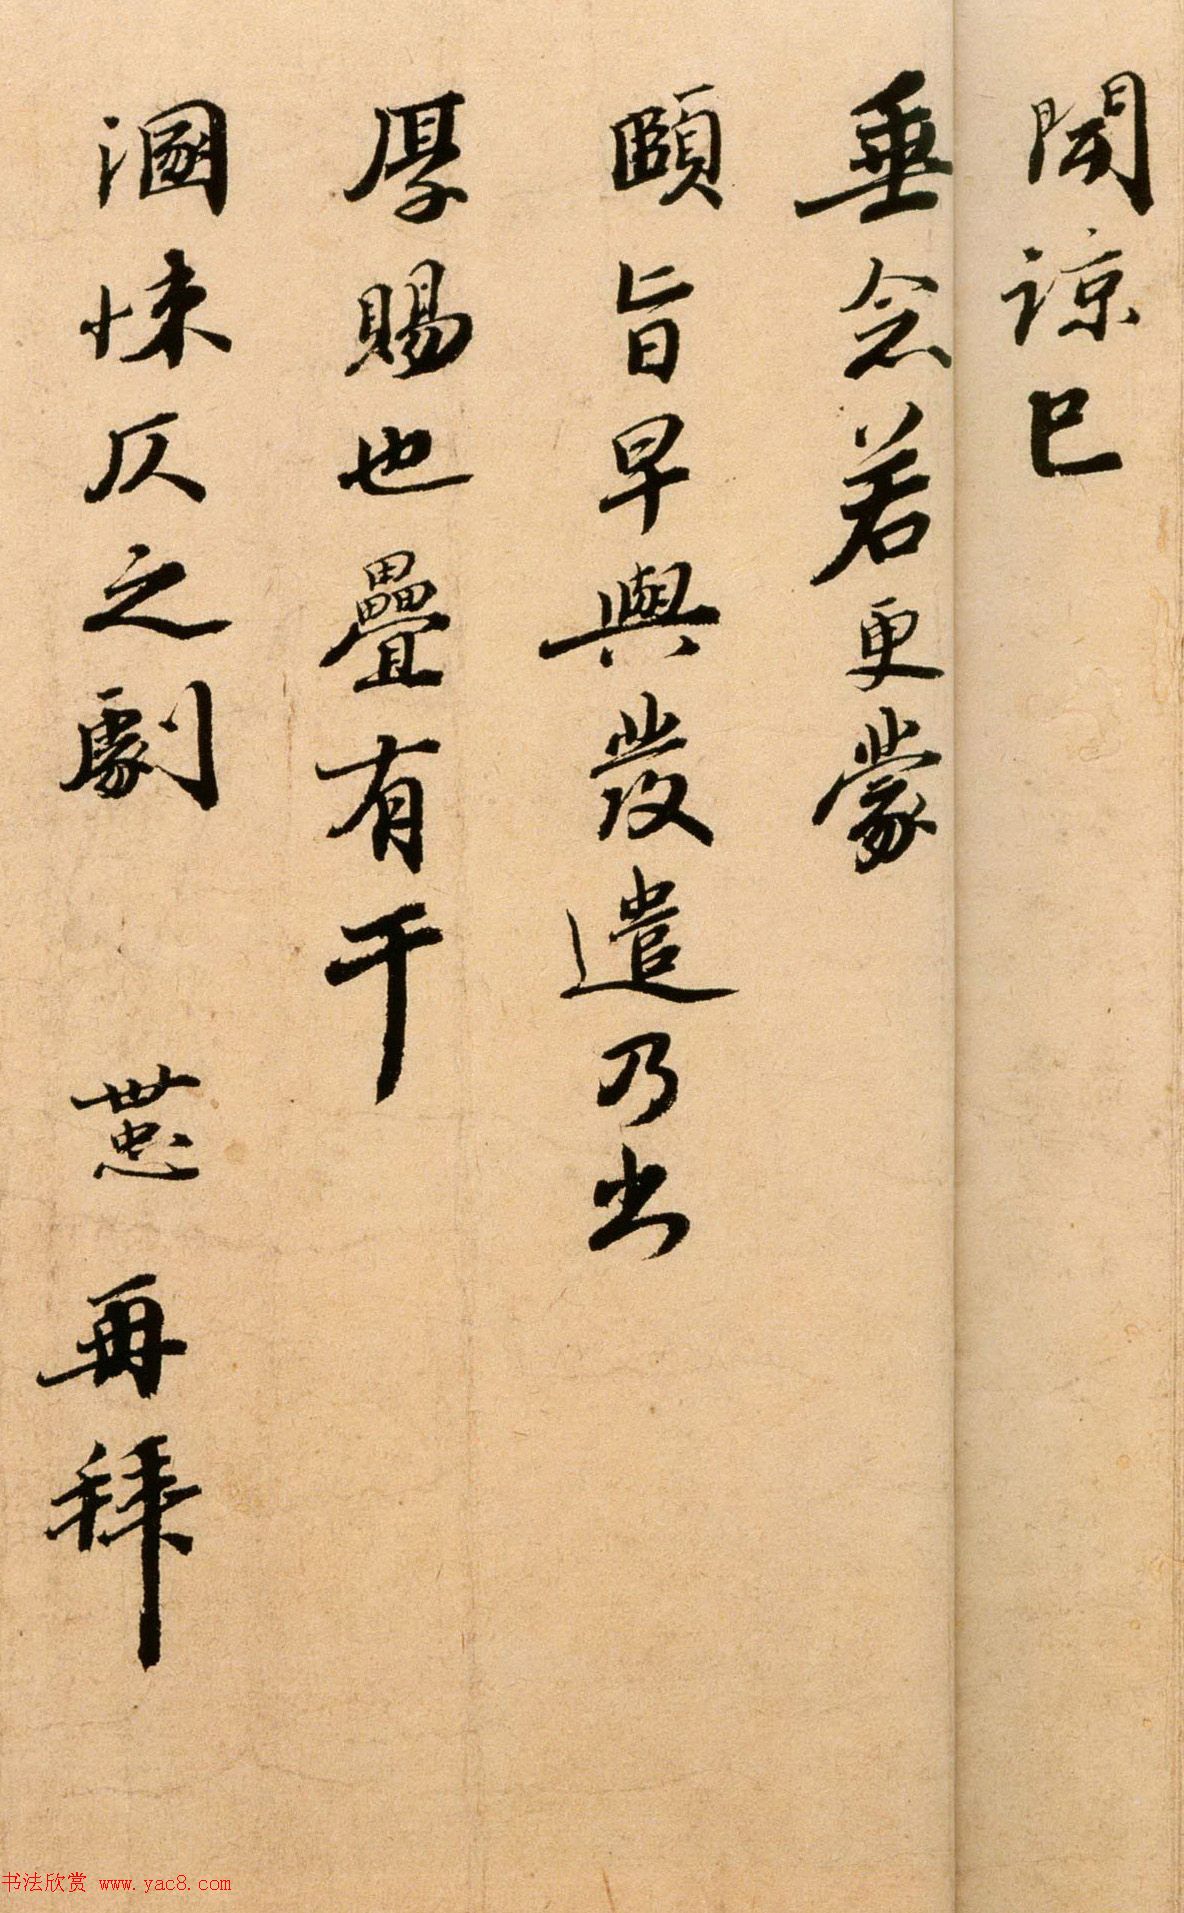 聞諒已
垂念若更蒙
頤旨早與發遣乃出
厚賜也疊有干
溷悚仄之劇 㤅再拜
书法欣赏 www.yac8.com